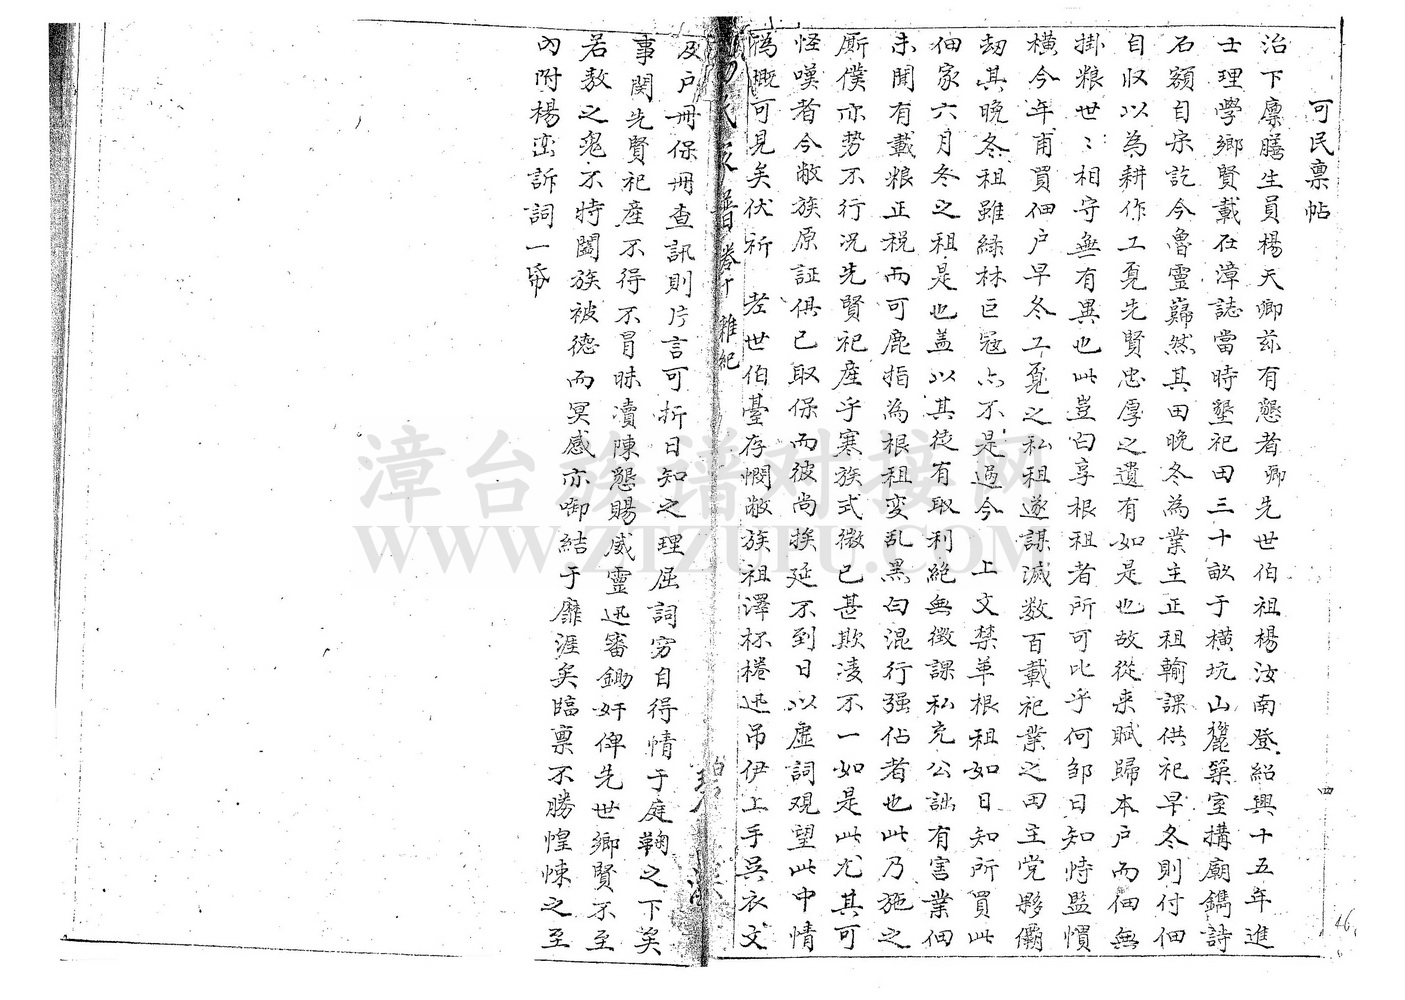 可民禀帖
治下廪膳生員楊天卿兹有懇者卿先世伯祖楊汝南登紹興十五年進
士理學鄉賢載在漳誌當時墾祀田三十畝于橫坑山麓築室搆廟鐫詩
石額自宋訖今魯靈巋然其田晚冬為業主正租輸課供祀早冬則付佃
自収以為耕作工覔先賢忠厚之遺有如是也故從来賦歸本户而佃無
掛粮世〻相守無有異也此豈白享根租者所可比乎何邹日知恃監慣
橫今年甫買佃户早冬工覔之私租遂謀滅数百載祀業之田主党夥霸
刼其晚冬租雖綠林巨冦亦不是過今 上文禁革根租如日知所買此
佃家六月冬之租是也盖以其徒有取利絶無徵課私充公詘有害業佃
未聞有載粮正税而可鹿指為根租变乱黑白混行强佔者也此乃施之
厮僕亦势不行况先賢祀産乎寒族式微已甚欺凌不一如是此尤其可
怪嘆者今敝族原証俱已取保而彼尚挨延不到日以虛詞观望此中情
偽概可見矣伏祈 老世伯臺存憫敝族祖澤杯棬迅吊伊上手吳衣文
楊氏家譜卷十 雜紀
及户冊保冊查訊則片言可折日知之理屈詞穷自得情于庭鞠之下矣
事関先賢祀産不得不冒昧瀆陳懇賜威靈迅審鋤奸俾先世鄉賢不至
若敖之鬼不特闔族被德而冥感亦啣結于靡涯矣臨禀不勝惶悚之至
內附楊峦訴詞一帋
四
46
漳台族谱对接网
WWW.ZTZUPU.COM